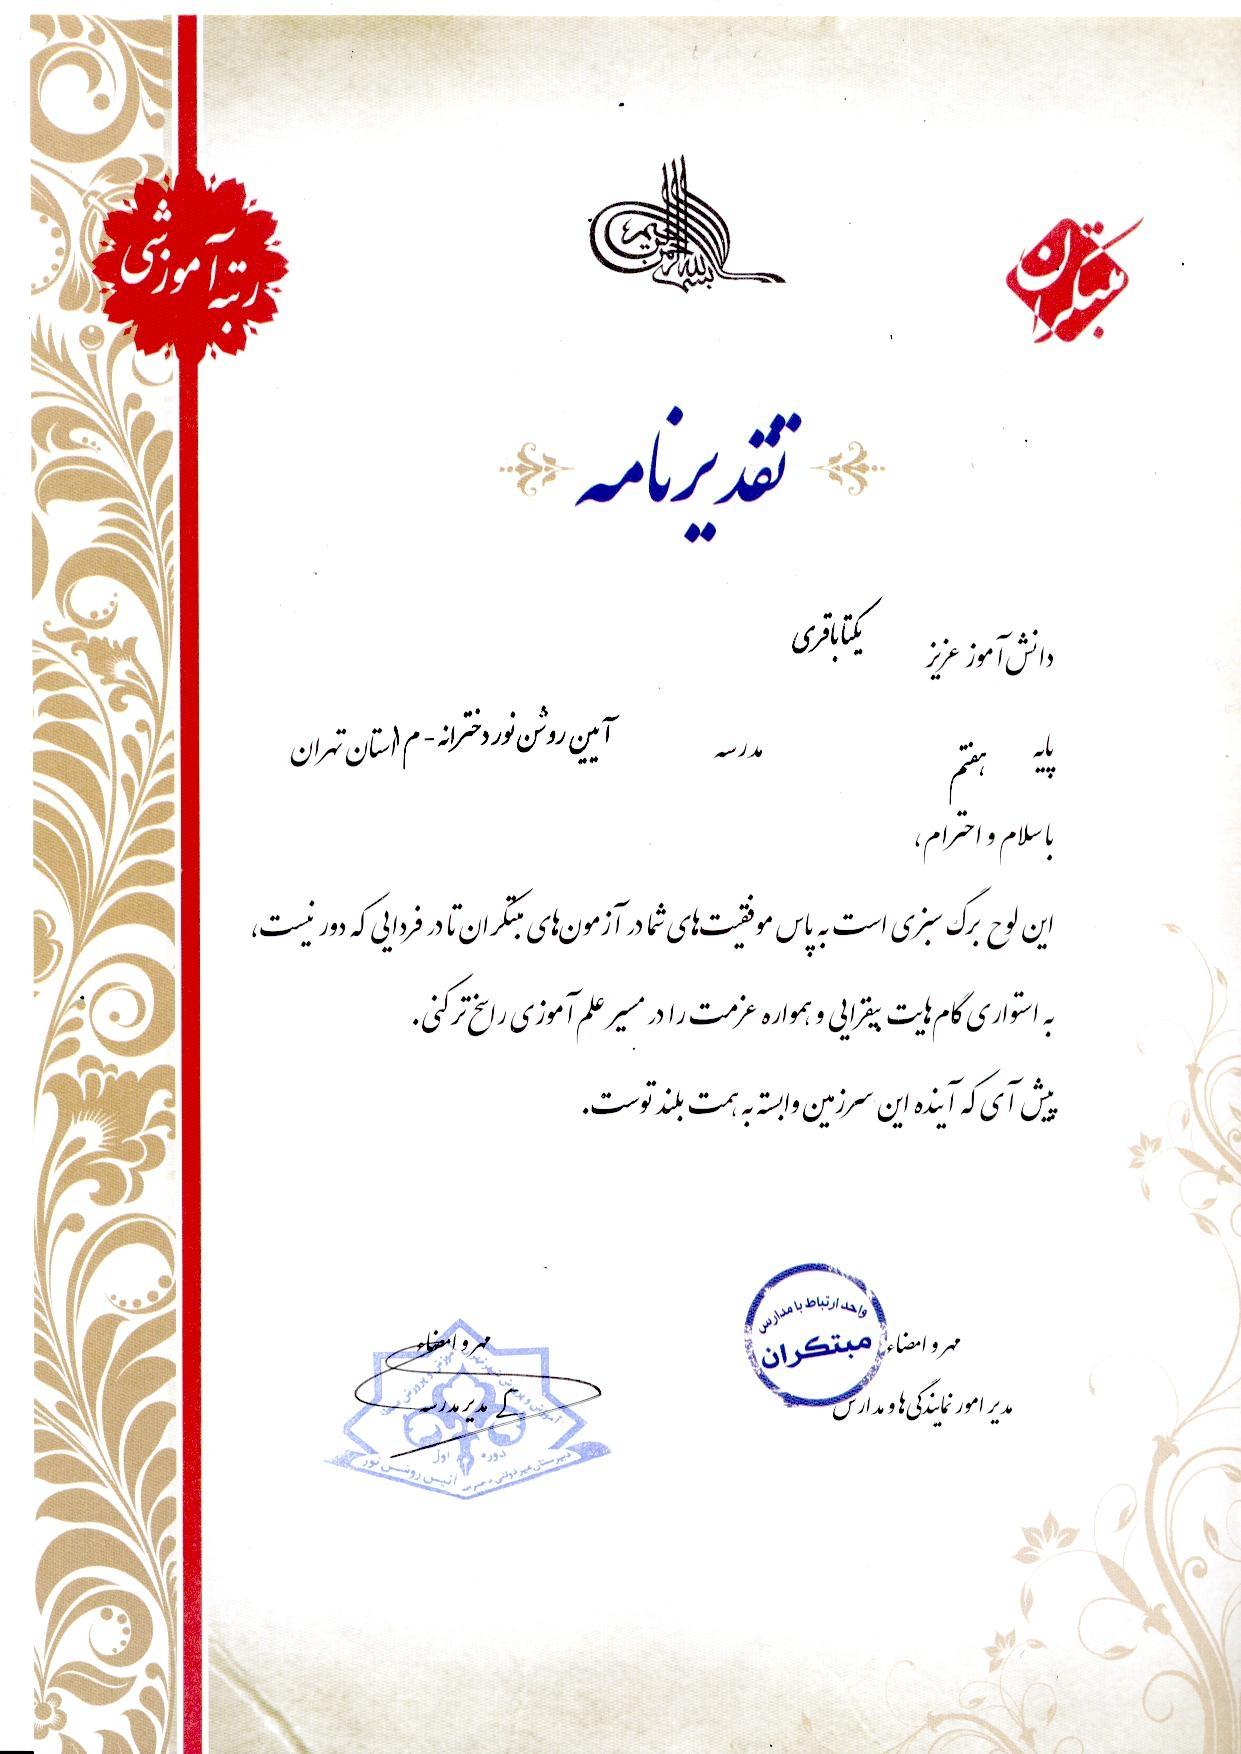 بسم الله الرحمن الرحیم
مبتکران
رتبه آموزشی
تقدیرنامه
دانش آموز عزیز یکتا باقری
پایه هفتم مدرسه آیین روشن نور دخترانه - م ۱ استان تهران
با سلام و احترام،
این لوح برگ سبزی است به پاس موفقیت های شما در آزمون های مبتکران تا در فردایی که دور نیست،
به استواری گام هایت بیفزایی و همواره عزمت را در مسیر علم آموزی راسخ تر کنی.
پیش آی که آینده این سرزمین وابسته به همت بلند توست.
مهر و امضاء
مدیر امور نمایندگی ها و مدارس
واحد ارتباط با مدارس
مبتکران
مهر و امضاء
مدیر مدرسه
دوره اول